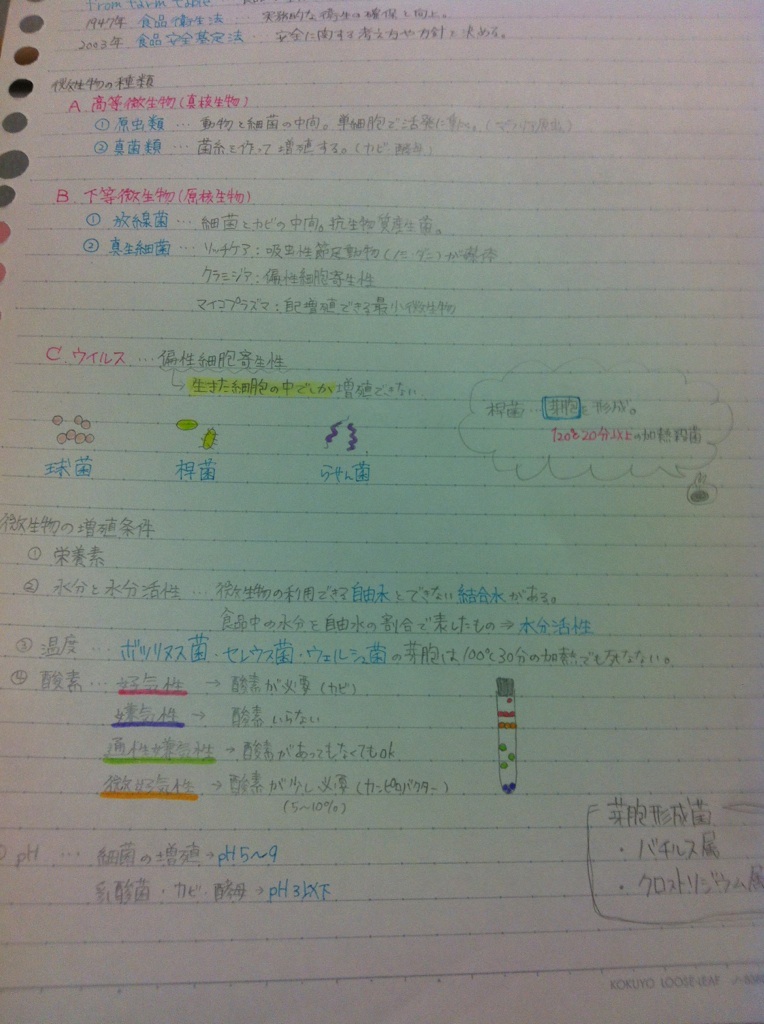 from farm table
1947年 食品衛生法 … 実務的な衛生の確保と向上。
2003年 食品安全基定法 … 安全に関する考え方や方針を決める。
微生物の種類
A 高等微生物(真核生物)
① 原虫類 … 動物と細菌の中間。単細胞で活発に動く。
② 真菌類 … 菌糸を作って増殖する。(カビ・酵母)
B 下等微生物(原核生物)
① 放線菌 … 細菌とカビの中間。抗生物質産生菌。
② 真生細菌 … リッチケア:吸虫性節足動物(ノミ・ダニ)が媒体
クラミジア:偏性細胞寄生性
マイコプラズマ:自己増殖できる最小微生物
C ウイルス … 偏性細胞寄生性
→ 生きた細胞の中でしか増殖できない
桿菌 … 芽胞を形成。
120℃20分以上の加熱殺菌
球菌 桿菌 らせん菌
微生物の増殖条件
① 栄養素
② 水分と水分活性 … 微生物の利用できる自由水とできない結合水がある。
食品中の水分を自由水の割合で表したもの⇒水分活性
③ 温度 … ボツリヌス菌・セレウス菌・ウェルシュ菌の芽胞は100℃30分の加熱でも死なない。
④ 酸素 … 好気性 → 酸素が必要(カビ)
嫌気性 → 酸素いらない
通性嫌気性 → 酸素があってもなくてもok
微好気性 → 酸素が少し必要(カンピロバクター)
(5~10%)
芽胞形成菌
・バチルス属
・クロストリジウム属
pH … 細菌の増殖→pH5~9
乳酸菌・カビ・酵母→pH3以下
KOKUYO LOOSE-LEAF